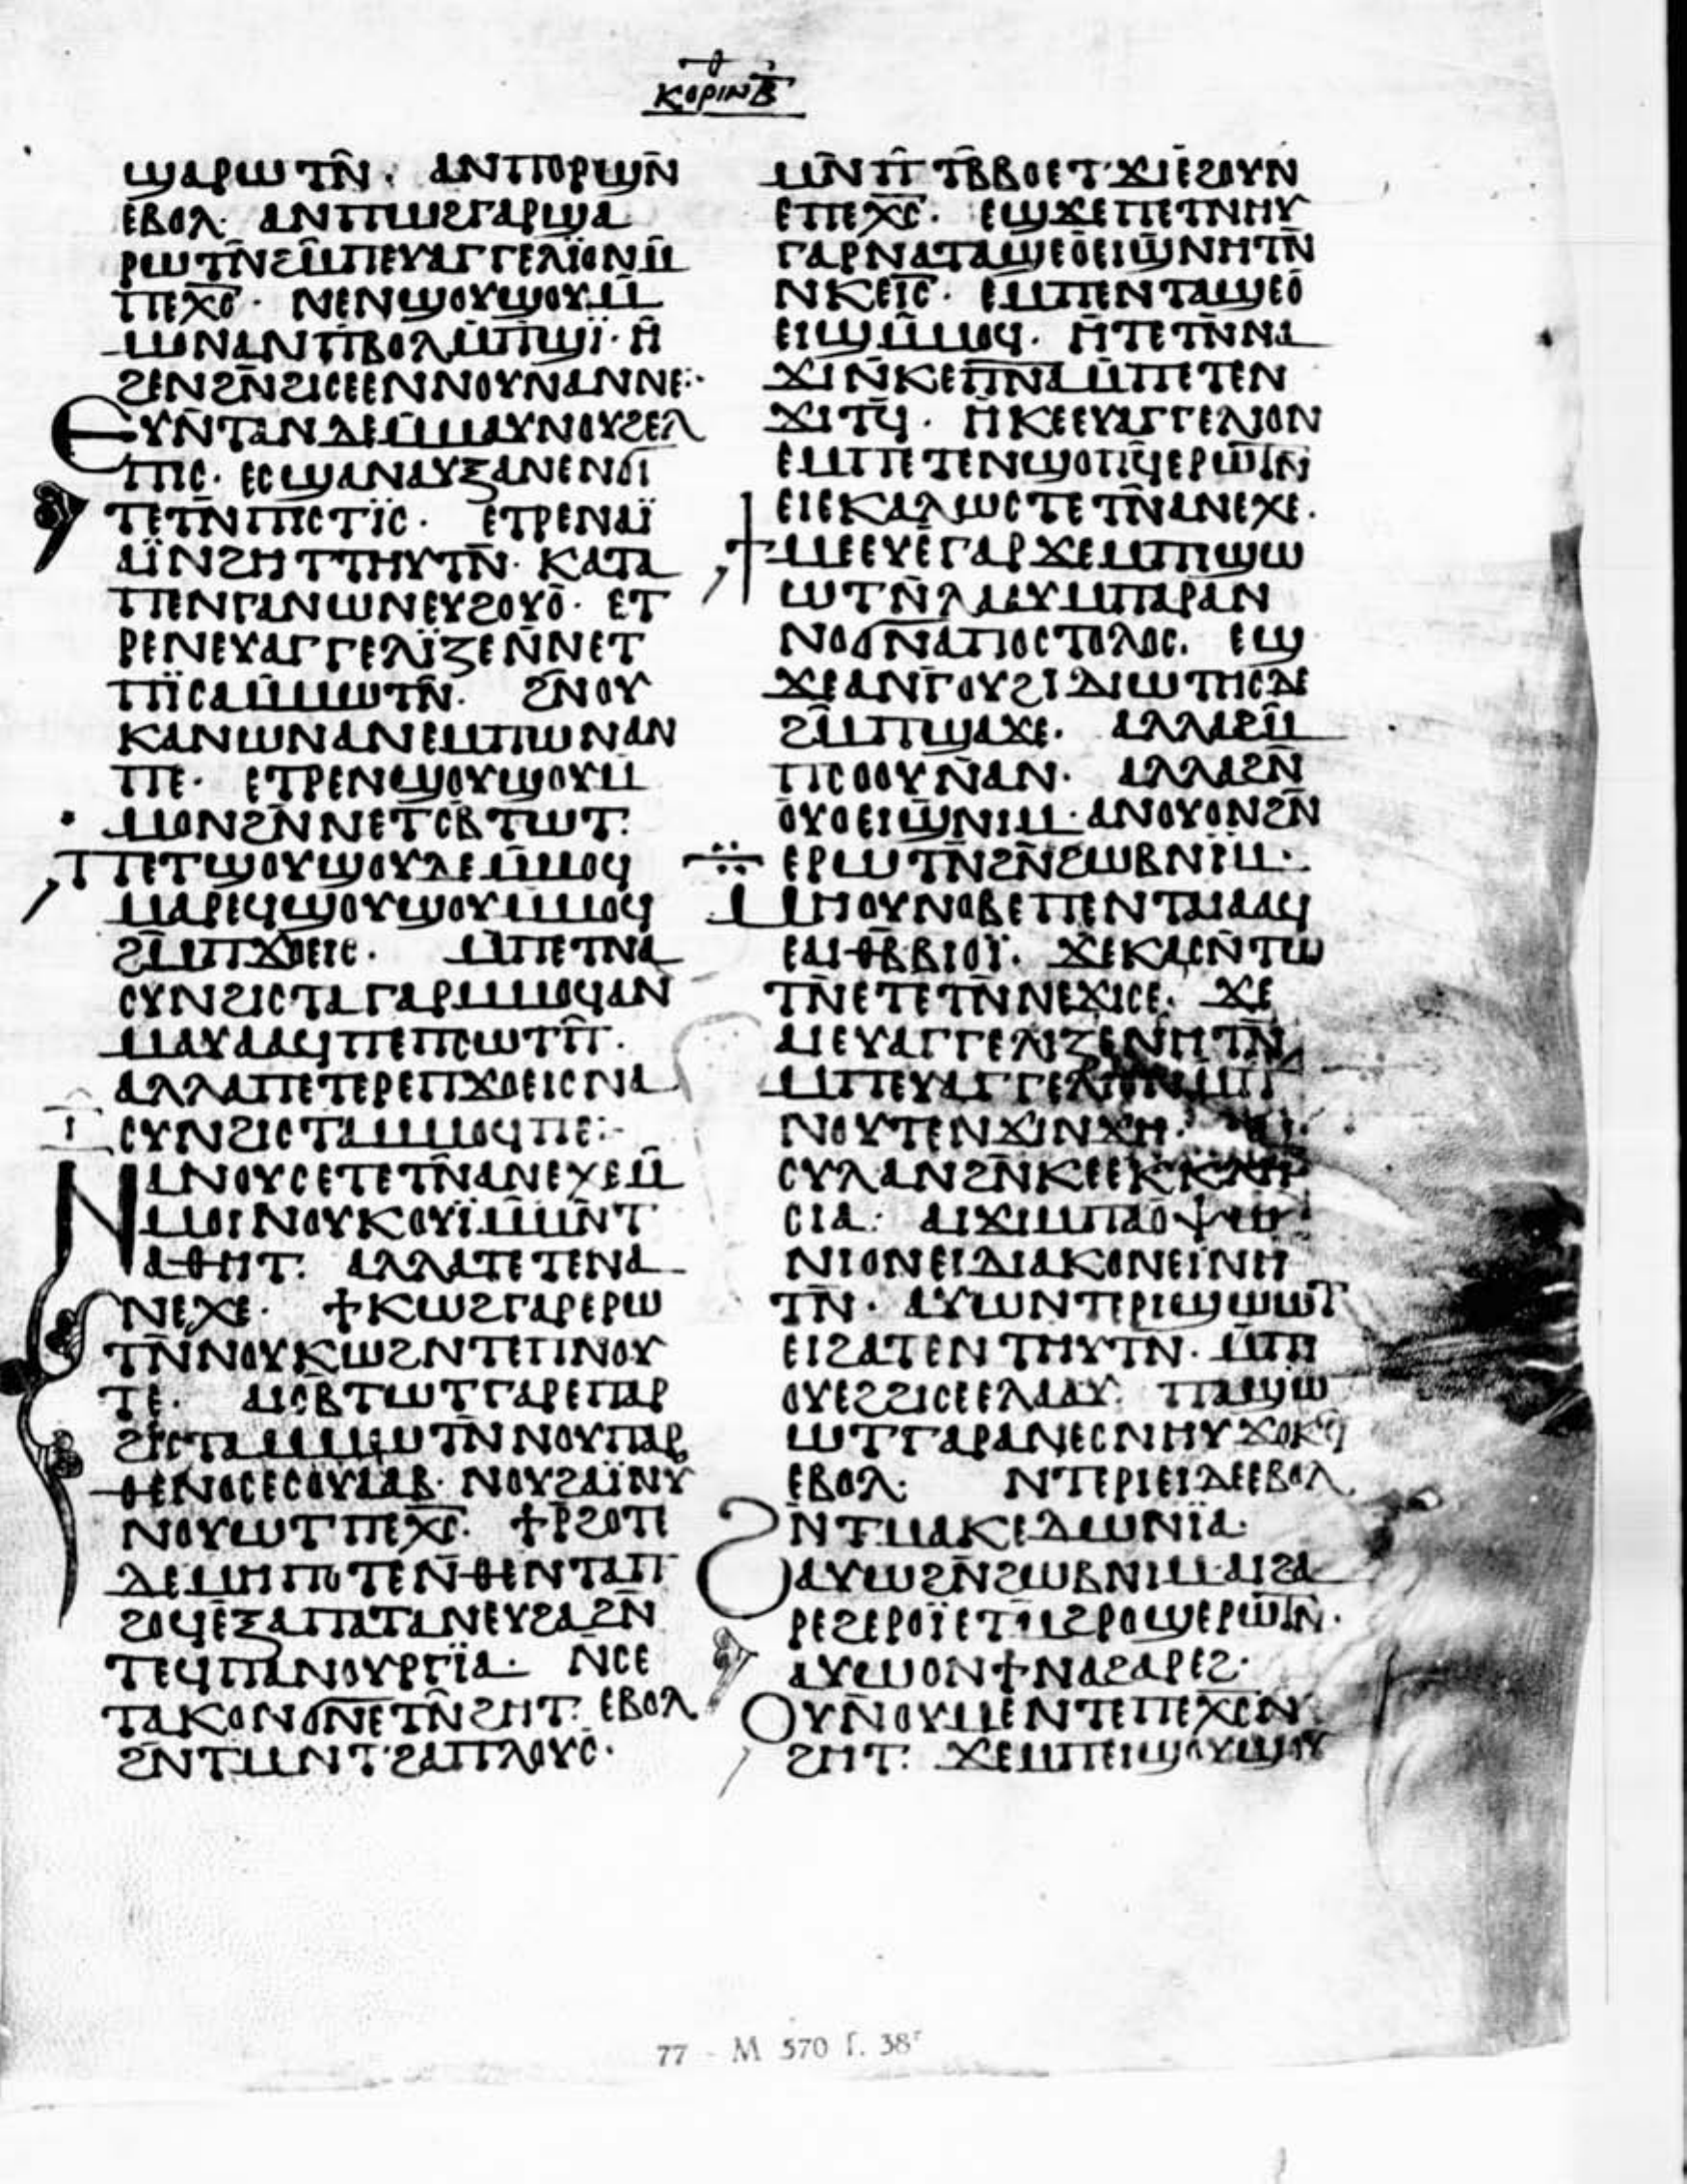 ⲑ
ⲕⲟⲣⲓⲛ ⲃ̅
ϣⲁⲣⲱⲧⲛ̅· ⲁⲛⲡⲟⲣϣⲛ̅
ⲉⲃⲟⲗ· ⲁⲛⲡⲱϩⲅⲁⲣϣⲁ
ⲣⲱⲧⲛ̅ϩⲙ̅ⲡⲉⲩⲁⲅⲅⲉⲗⲓ̈ⲟⲛⲙ̅
ⲡⲉⲭ̅ⲥ̅· ⲛⲉⲛϣⲟⲩϣⲟⲩⲙ̅
ⲙⲟⲛⲁⲛⲡ̅ⲃⲟⲗⲙ̅ⲡϣⲓ̈· ⲏ̂
ϩⲉⲛϩⲛ̅ϩⲓⲥⲉⲉⲛⲛⲟⲩⲛⲁⲛⲛⲉ:·
ⲉⲩⲛ̅ⲧⲁⲛⲇⲉⲙ̅ⲙⲁⲩⲛⲟⲩϩⲉⲗ
ⲡⲓⲥ· ⲉⲥϣⲁⲛⲁⲩⲝⲁⲛⲉⲛϭⲓ
ⲧⲉⲧⲛ̅ⲡⲓⲥⲧⲓ̈ⲥ· ⲉⲧⲣⲉⲛⲁⲓ̈
ⲁⲓ̈ⲛϩⲏⲧⲧⲏⲩⲧⲛ̅· ⲕⲁⲧⲁ
ⲡⲉⲛⲕⲁⲛⲱⲛⲉⲩϩⲟⲩⲟ̂· ⲉⲧ
ⲣⲉⲛⲉⲩⲁⲅⲅⲉⲗⲓ̈ⲍⲉⲛ̅ⲛⲉⲧ
ⲡⲓ̈ⲥⲁⲙ̅ⲙⲱⲧⲛ̅· ϩⲛⲟⲩ
ⲕⲁⲛⲱⲛⲁⲛⲉⲙⲡⲱⲛⲁⲛ
ⲡⲉ· ⲉⲧⲣⲉⲛϣⲟⲩϣⲟⲩⲙ̅
ⲙⲟⲛϩⲛ̅ⲛⲉⲧⲥⲃⲧⲱⲧ·
ⲡⲉⲧϣⲟⲩϣⲟⲩⲇⲉⲙ̅ⲙⲟϥ
ⲙⲁⲣⲉϥϣⲟⲩϣⲟⲩⲙⲙⲟϥ
ϩⲙ̅ⲡϫⲟⲉⲓⲥ· ⲙⲡⲉⲧⲛⲁ
ⲥⲩⲛϩⲓⲥⲧⲁⲅⲁⲣⲙⲙⲟϥⲁⲛ
ⲙⲁⲩⲁⲁϥⲡⲉⲡⲥⲱⲧⲡ̅·
ⲁⲗⲗⲁⲡⲉⲧⲉⲣⲉⲡϫⲟⲉⲓⲥⲛⲁ
ⲥⲩⲛϩⲓⲥⲧⲁⲙⲙⲟϥⲡⲉ:-
ⲛⲁⲛⲟⲩⲥⲉⲧⲉⲧⲛ̅ⲁⲛⲉⲭⲉⲙ̅
ⲙⲟⲓⲛⲟⲩⲕⲟⲩⲓ̈ⲙ̅ⲙⲛ̅ⲧ
ⲁⲑⲏⲧ· ⲁⲗⲗⲁⲧⲉⲧⲉⲛⲁ
ⲛⲉⲭⲉ· ϯⲕⲱϩⲅⲁⲣⲉⲣⲱ
ⲧⲛ̅ⲛⲟⲩⲕⲱϩⲛⲧⲉⲡⲛⲟⲩ
ⲧⲉ· ⲁⲓⲥⲃⲧⲱⲧⲅⲁⲣⲉⲡⲁⲣ
ϩⲓⲥⲧⲁⲙⲙⲱⲧⲛⲛⲟⲩⲡⲁⲣ
ⲑⲉⲛⲟⲥⲉⲥⲟⲩⲁⲁⲃ· ⲛⲟⲩϩⲁⲓ̈ⲛⲩ
ⲛⲟⲩⲱⲧⲡⲉⲭ̅ⲥ̅· ϯⲣϩⲟⲧⲉ
ⲇⲉⲙⲏⲡⲟⲧⲉⲛ̅ⲑⲉⲛⲧⲁⲡ
ϩⲟϥⲉⲝⲁⲡⲁⲧⲁⲛⲉⲩϩⲁϩⲛ̅
ⲧⲉϥⲡⲁⲛⲟⲩⲣⲅⲓ̈ⲁ· ⲛ̅ⲥⲉ
ⲧⲁⲕⲟⲛϭⲛⲉⲧⲛ̅ϩⲏⲧ· ⲉⲃⲟⲗ
ϩⲛⲧⲙⲛⲧϩⲁⲡⲗⲟⲩⲥ·
ⲙⲛ̅ⲡ̅ⲧⲃ̅ⲃⲟⲉⲧϫⲓⲉ̂ϩⲟⲩⲛ
ⲉⲡⲉⲭ̅ⲥ̅· ⲉϣϫⲉⲡⲉⲧⲛⲏⲩ
ⲅⲁⲣⲛⲁⲧⲁϣⲉⲟ̂ⲉⲓϣⲛⲏⲧⲛ̅
ⲛⲕⲉⲓ̅ⲥ̅· ⲉⲙⲡⲉⲛⲧⲁϣⲉⲟ̂
ⲉⲓϣⲙ̅ⲙⲟϥ· ⲏ̂ⲧⲉⲧⲛ̅ⲛⲁ
ϫⲓⲛ̅ⲕⲉⲡ̅ⲛ̅ⲁ̅ⲙ̅ⲡⲉⲧⲉⲛ
ϫⲓⲧϥ̅· ⲏ̂ⲕⲉⲉⲩⲁⲅⲅⲉⲗⲓⲟⲛ
ⲉⲙⲡⲉⲧⲉⲛϣⲟⲡϥ̅ⲉⲣⲱⲧⲛ̅
ⲉⲓⲉⲕⲁⲗⲱⲥⲧⲉⲧⲛ̅ⲁⲛⲉⲭⲉ·
ϯⲙⲉⲉⲩⲉ̂ⲅⲁⲣϫⲉⲙⲡⲓϣⲱ
ⲱⲧⲛ̅ⲗⲁⲁⲩⲙⲡⲁⲣⲁⲛ
ⲛⲟϭⲛ̅ⲁⲡⲟⲥⲧⲟⲗⲟⲥ· ⲉϣ
ϫⲉⲁⲛⲅⲟⲩϩⲓⲇⲓⲱⲧⲏⲥⲇⲉ
ϩⲙ̅ⲡϣⲁϫⲉ· ⲁⲗⲗⲁϩⲙ̅
ⲡⲥⲟⲟⲩⲛ̅ⲁⲛ· ⲁⲗⲗⲁϩⲛ̅
ⲟⲩⲟⲉⲓϣⲛⲓⲙ· ⲁⲛⲟⲩⲟⲛϩⲛ̅
ⲉⲣⲱⲧⲛ̅ϩⲛ̅ϩⲱⲃⲛⲓⲙ·
ⲙⲏⲟⲩⲛⲟⲃⲉⲡⲉⲛⲧⲁⲓⲁⲁϥ
ⲉⲁⲓⲑⲃ̅ⲃⲓⲟⲓ̈· ϫⲉⲕⲁⲥⲛ̅ⲧⲱ
ⲧⲛ̅ⲉⲧⲉⲧⲛ̅ⲛⲉϫⲓⲥⲉ· ϫⲉ
ⲁⲓⲉⲩⲁⲅⲅⲉⲗⲓⲍⲉⲛⲏⲧⲛ̅
ⲙⲡⲉⲩⲁⲅⲅⲉⲗⲓⲟⲛⲙⲡ
ⲛⲟⲩⲧⲉⲛϫⲓⲛϫⲏ·
ⲥⲩⲗⲁⲛϩⲛ̅ⲕⲉⲉⲕⲕⲗⲏ
ⲥⲓⲁ· ⲁⲓϫⲓⲙⲡⲁⲟ̂ⲯⲱ
ⲛⲓⲟⲛⲉⲓⲇⲓⲁⲕⲟⲛⲉⲓⲛⲏ
ⲧⲛ̅· ⲁⲩⲱⲛⲧⲉⲣⲓϣⲱⲱⲧ
ⲉⲓϩⲁⲧⲉⲛⲧⲏⲩⲧⲛ̅· ⲙ̅ⲡⲓ
ⲟⲩⲉϩϩⲓⲥⲉⲉⲗⲁⲁⲩ· ⲡⲁϣⲱ
ⲱⲧⲅⲁⲣⲁⲛⲉⲥⲛⲏⲩϫⲟⲕϥ
ⲉⲃⲟⲗ· ⲛⲧⲉⲣⲓⲉⲓⲇⲉⲉⲃⲟⲗ
ϩⲛⲧⲙⲁⲕⲉⲇⲱⲛⲓ̈ⲁ·
ⲁⲩⲱϩⲛ̅ϩⲱⲃⲛⲓⲙ·ⲁⲓϩⲁ
ⲣⲉϩⲉⲣⲟⲓ̈ⲉⲧⲙ̅ϩⲣⲟϣⲉⲣⲱⲧⲛ̅·
ⲁⲩⲱⲟⲛϯⲛⲁϩⲁⲣⲉϩ·
ⲟⲩⲛ̅ⲟⲩⲙⲉⲛⲧⲉⲡⲉⲭⲥⲛ
ϩⲏⲧ· ϫⲉⲙⲡⲉⲓϣⲟⲩϣⲟⲩ
77 - M 570 f. 38ʳ